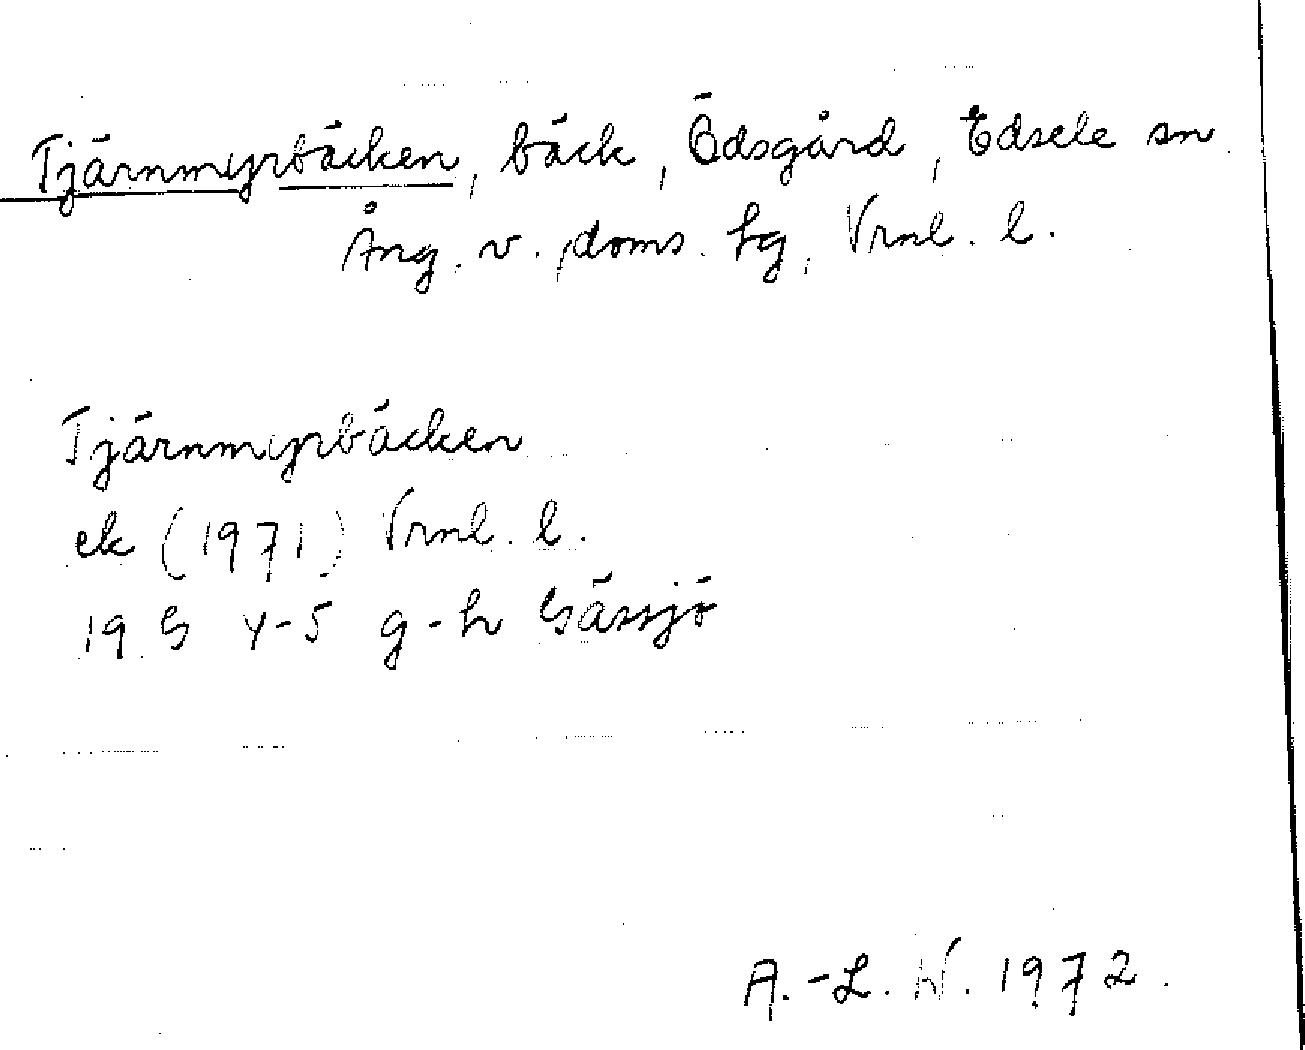 Tjärnmyrbäcken, bäck, Ödsgård, Edsele sn
Ång. v. doms. hg, Vrml. l.
Tjärnmyrbäcken
ek (1971) Vrml. l.
19 G Y-5 g-h Gässjö
A.-L. W. 1972.